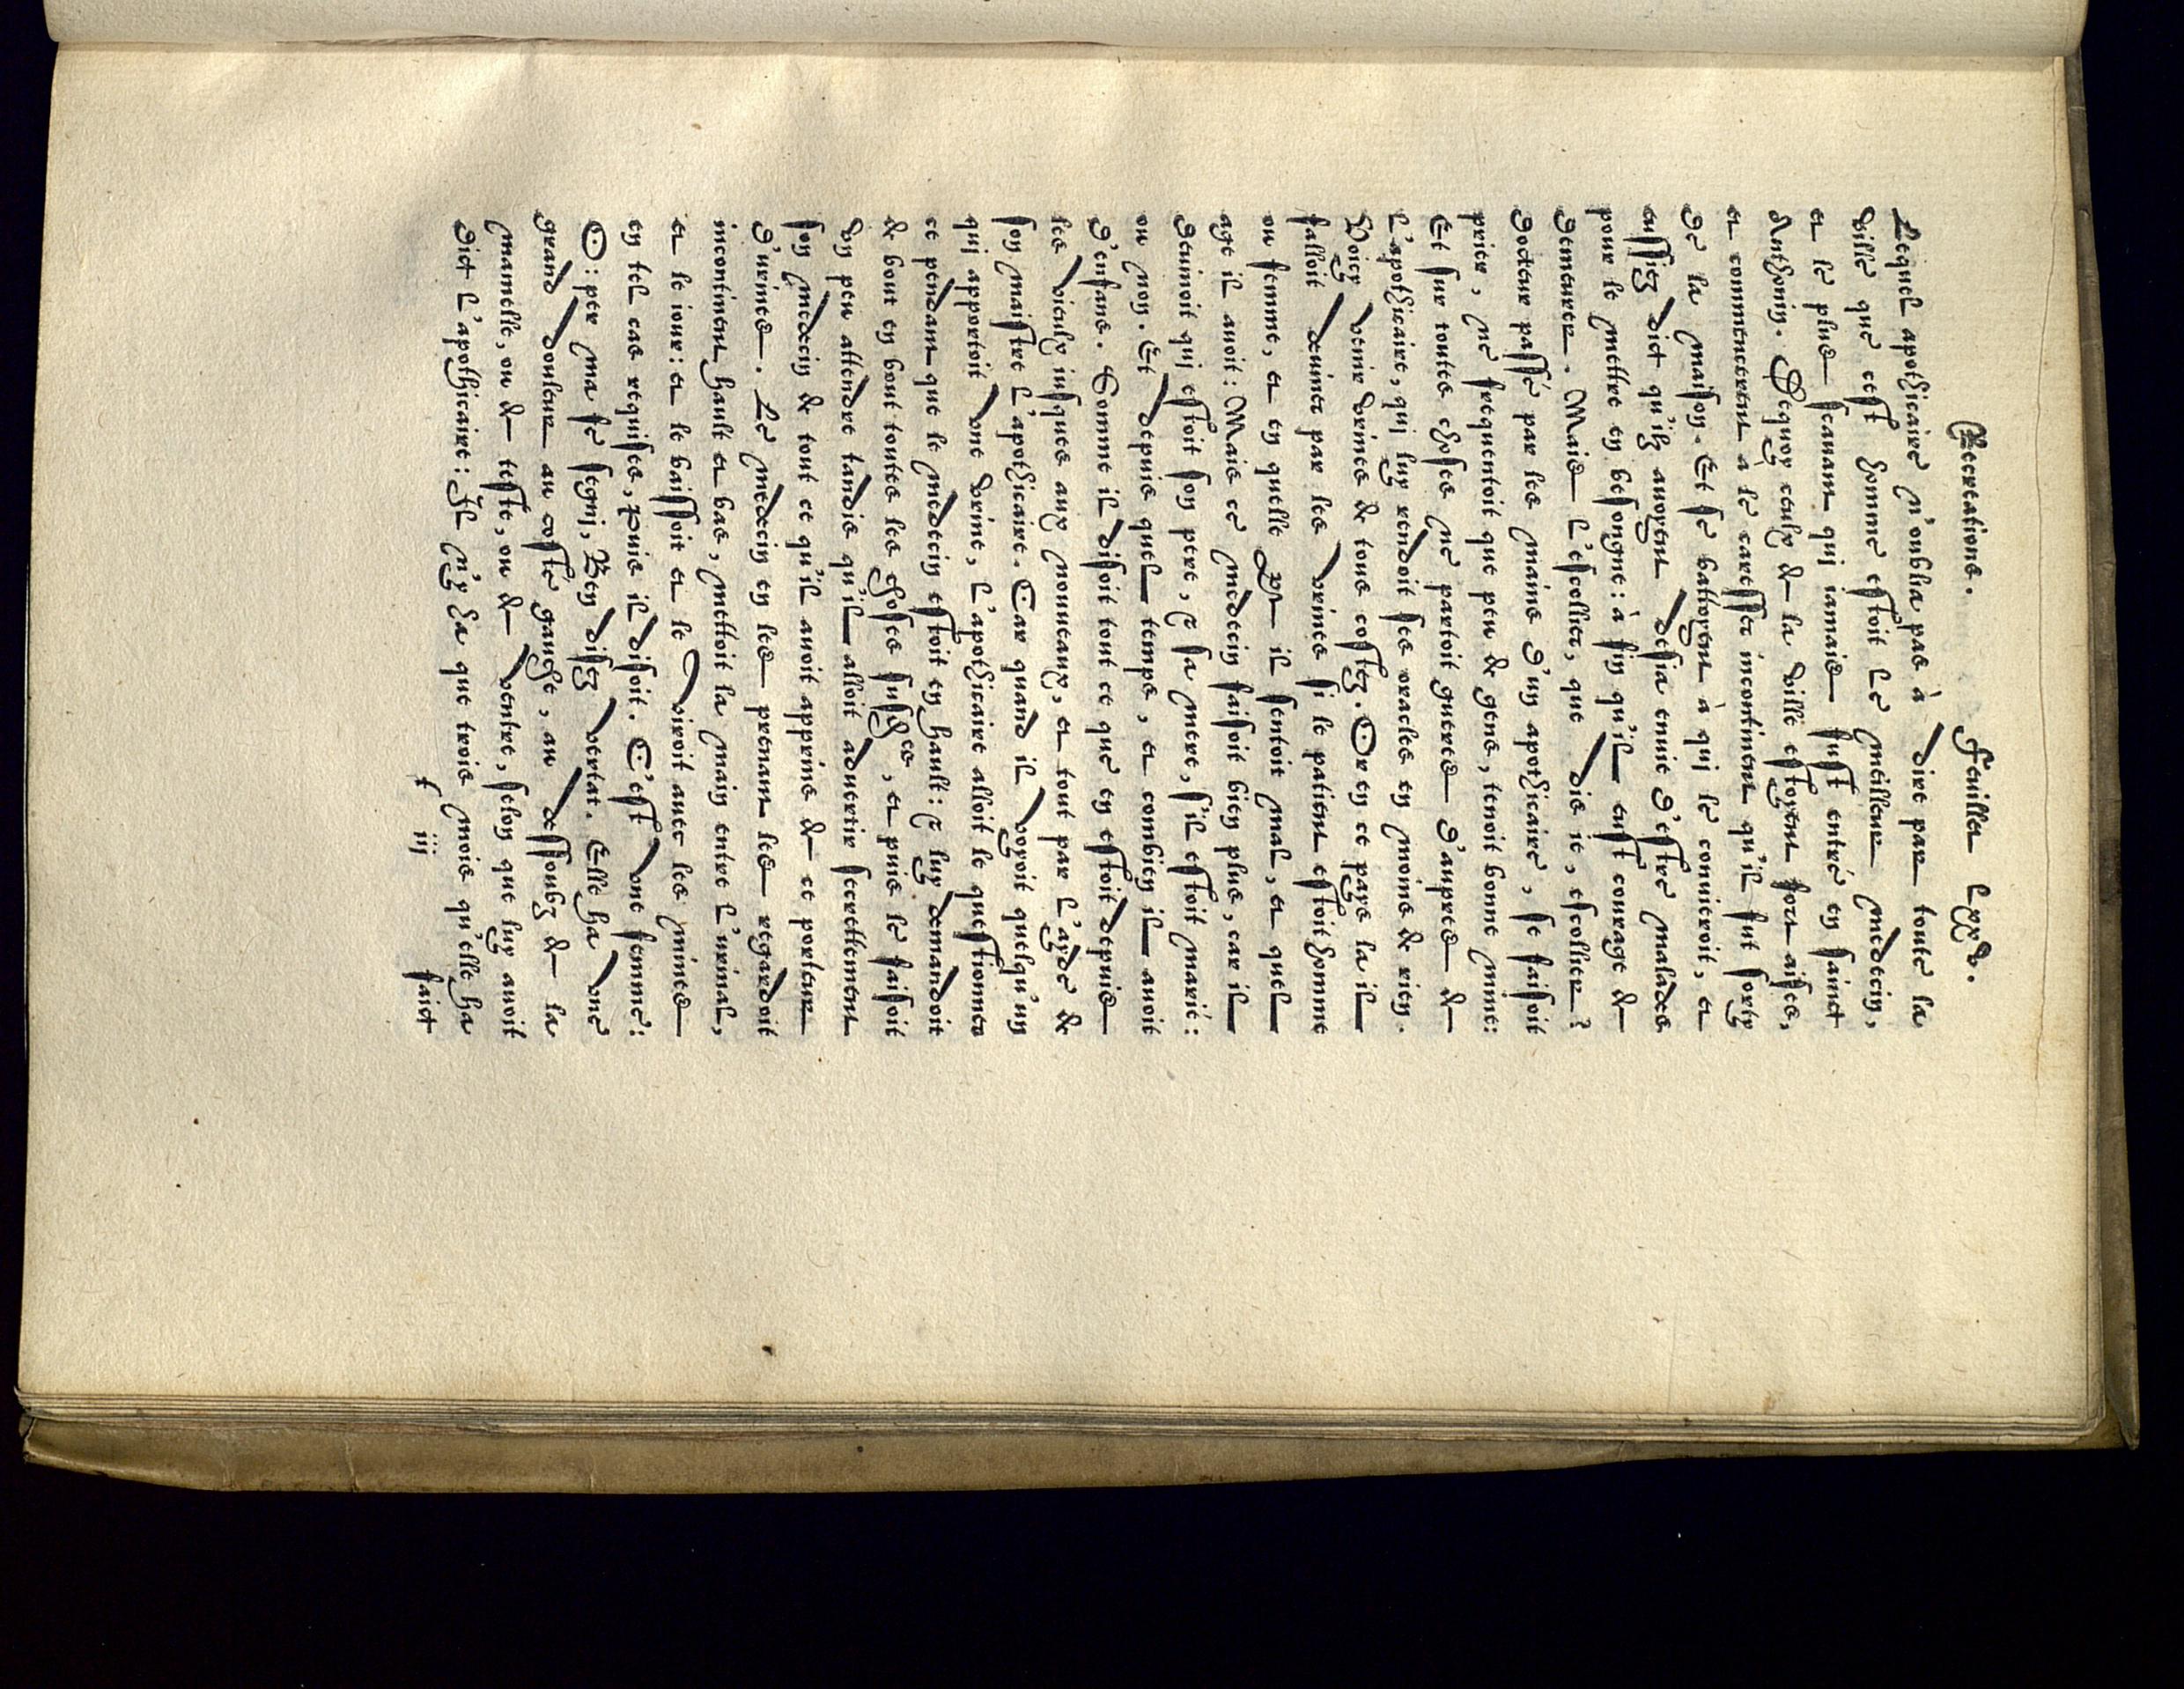 Recreations. Feuillet lxxv.
Lequel apothicaire n'oublia pas à dire par toute la
ville que cest homme estoit le meilleur medecin,
et le plus scauant qui iamais fust entré en sainct
Anthonin. Dequoy ceulx de la ville estoyent fort aises,
et commencerent à le caresser incontinent qu'il fut sorty
de la maison. Et se battoyent à qui le conuieroit, et
eussiez dict qu'ilz auoyent desia enuie d'estre malades
pour le mettre en besongne: à fin qu'il eust courage de
demeurer. Mais l'escollier, que dis ie, escollier?
docteur passé par les mains d'un apothicaire, se faisoit
prier, ne frequentoit que peu de gens, tenoit bonne mine:
Et sur toutes choses ne partoit gueres d'aupres de
l'apothicaire, qui luy rendoit ses oracles en moins de rien.
Voicy venir vrines de tous costez. Or en ce pays la il
falloit deuiner par les vrines si le patient estoit homme
ou femme, et en quelle part il sentoit mal, et quel
age il auoit: Mais ce medecin faisoit bien plus, car il
deuinoit qui estoit son pere, & sa mere, s'il estoit marié:
ou non. Et depuis quel temps, et combien il auoit
d'enfans. Somme il disoit tout ce que en estoit depuis
les vieulx iusques aux nouueaux, et tout par l'ayde de
son maistre l'apothicaire. Car quand il voyoit quelqu'un
qui apportoit vne vrine, l'apothicaire alloit le questionner
ce pendant que le medecin estoit en hault: & luy demandoit
de bout en bout toutes les choses susdictes, et puis le faisoit
vn peu attendre tandis qu'il alloit aduertir secrettement
son medecin de tout ce qu'il auoit apprins de ce porteur
d'urines. Le medecin en les prenant les regardoit
incontinent hault et bas, mettoit la main entre l'urinal,
et le iour: et le baissoit et le viroit auec les mines
en tel cas requises, puis il disoit. C'est vne femme:
O: per ma fe segni, Ben disez vertat. Elle ha vne
grand douleur au costé gauche, au dessoubz de la
mamelle, ou de teste, ou de ventre, selon que luy auoit
dict l'apothicaire: Il n'y ha que trois mois qu'elle ha
f iij faict